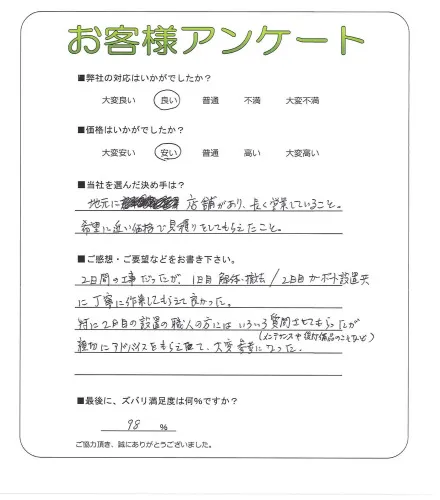 お客様アンケート
■弊社の対応はいかがでしたか？
大変良い 良い 普通 不満 大変不満
■価格はいかがでしたか？
大変安い 安い 普通 高い 大変高い
■当社を選んだ決め手は？
地元に店舗があり、長く営業していること。
希望に近い価格で見積りをしてもらえたこと。
■ご感想・ご要望などをお書き下さい。
2日間の工事だったが、1日目 解体・撤去 / 2日目 カーポート設置共
に丁寧に作業してもらえて良かった。
特に2日目の設置の職人の方には いろいろ質問させてもらったが
(メンテナンスや後付備品のことなど)
親切にアドバイスをもらえて、大変参考になった。
■最後に、ズバリ満足度は何%ですか？
98 %
ご協力頂き、誠にありがとうございました。